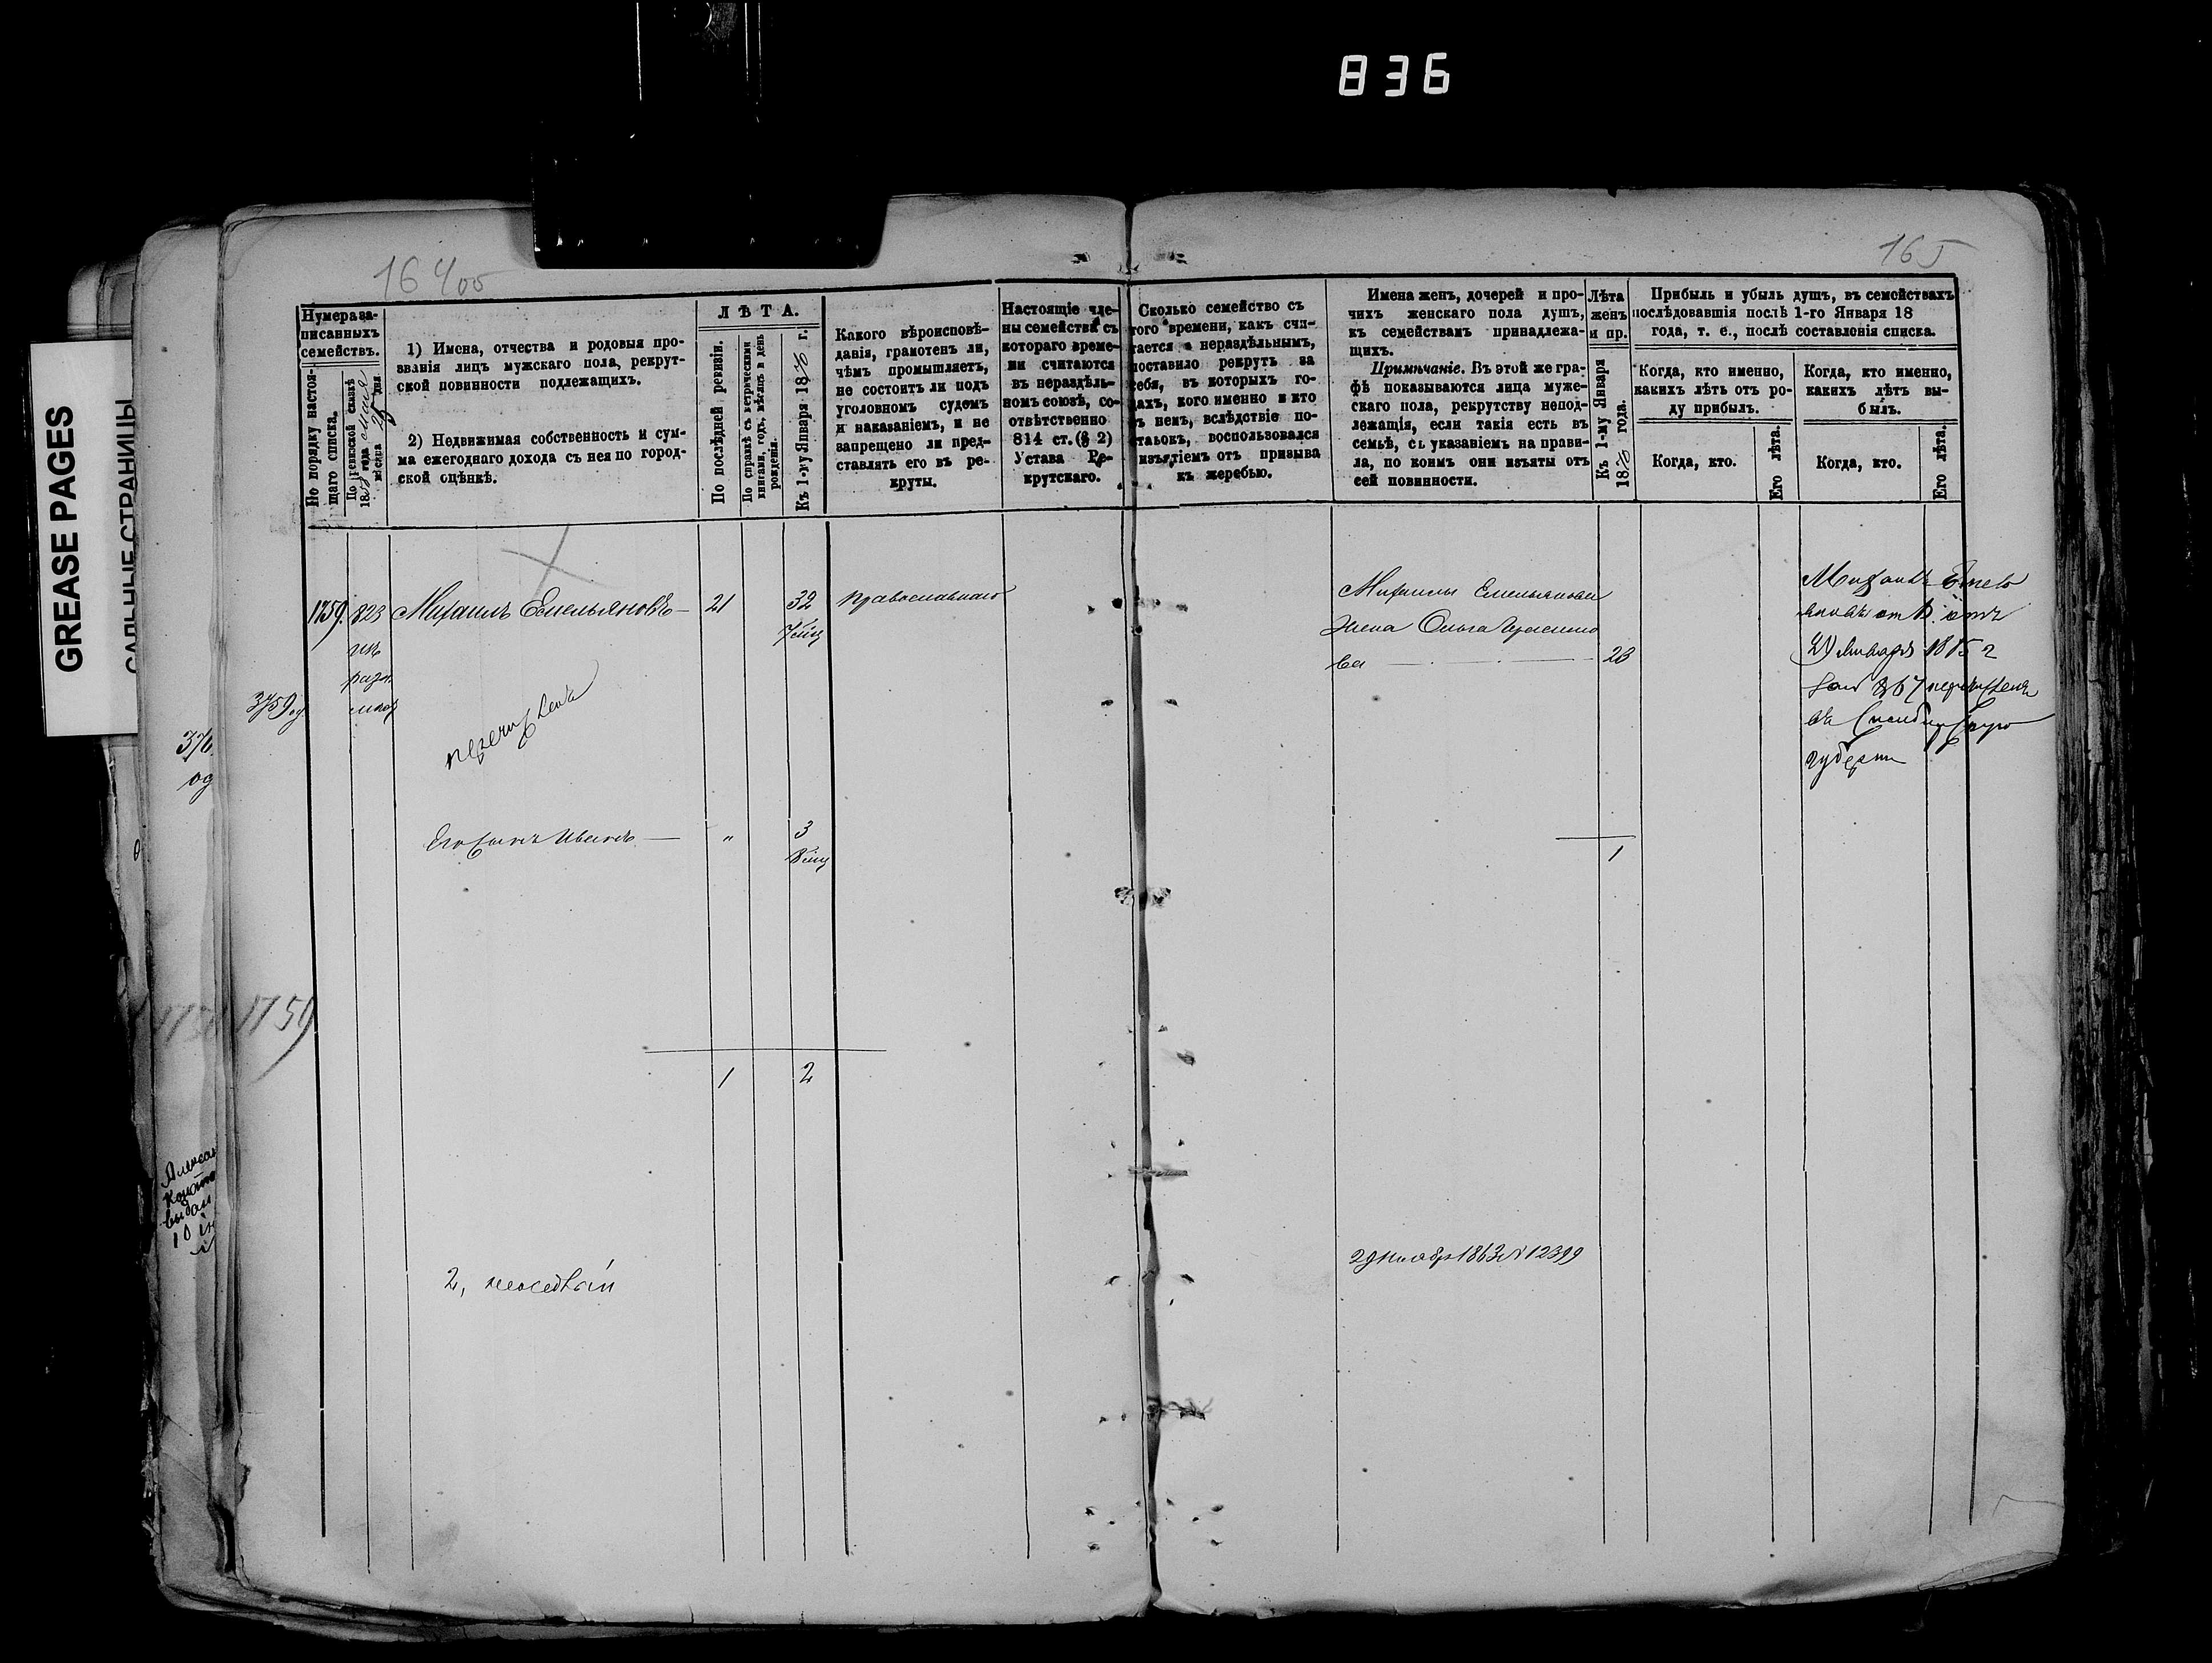 836
GREASE PAGES
САЛЬНЫЕ СТРАНИЦЫ
164 об
165
Нумера за-
писанныхъ
семействъ.
По порядку настоя-
щаго списка.
По ревизской сказкѣ
1858 года
мѣсяца дня
1) Имена, отчества и родовыя про-
званія лицъ мужскаго пола, рекрут-
ской повинности подлежащихъ.
2) Недвижимая собственность и сум-
ма ежегоднаго дохода съ нея по город-
ской оцѣнкѣ.
ЛѢТА.
По послѣдней ревизіи.
По справкѣ съ метрическими
книгами, годъ, мѣсяцъ и день
рожденія.
Къ 1-му Января 1870 г.
Какого вѣроисповѣ-
данія, грамотенъ ли,
чѣмъ промышляетъ,
не состоитъ ли подъ
уголовнымъ судомъ
и наказаніемъ, и не
запрещено ли пред-
ставлять его въ ре-
круты.
Настоящіе чле-
ны семейства съ
котораго време-
ни считаются
въ нераздѣль-
номъ союзѣ, со-
отвѣтственно
814 ст. (§ 2)
Устава Ре-
крутскаго.
Сколько семейство съ
того времени, какъ счи-
тается нераздѣльнымъ,
поставило рекрутъ за
себя, въ которыхъ го-
дахъ, кого именно и кто
въ немъ, вслѣдствіе по-
ставокъ, воспользовался
изъятіемъ отъ призыва
къ жеребью.
Имена женъ, дочерей и про-
чихъ женскаго пола душъ,
къ семействамъ принадлежа-
щихъ.
Примѣчаніе. Въ этой же гра-
фѣ показываются лица муже-
скаго пола, рекрутству непод-
лежащія, если такія есть въ
семьѣ, съ указаніемъ на прави-
ла, по коимъ они изъяты отъ
сей повинности.
Лѣта
женъ
и пр.
Къ 1-му Января
1870 года.
Прибыль и убыль душъ, въ семействахъ
послѣдовавшія послѣ 1-го Января 18
года, т. е., послѣ составленія списка.
Когда, кто именно,
какихъ лѣтъ отъ ро-
ду прибылъ.
Когда, кто именно,
какихъ лѣтъ вы-
былъ.
Когда, кто.
Его лѣта.
Когда, кто.
Его лѣта.
1759. 823 Михаилъ Емельяновъ — 21 32 православнаго
3759
перечисленъ
Его сынъ Иванъ — " 3
1759
1 2
Михаилы Емельянова
жена Ольга Герасимо
ва — 23
1
Января 1875 г
перечисленъ
въ
губерн
2, 
29 Ноября 1863 № 12399